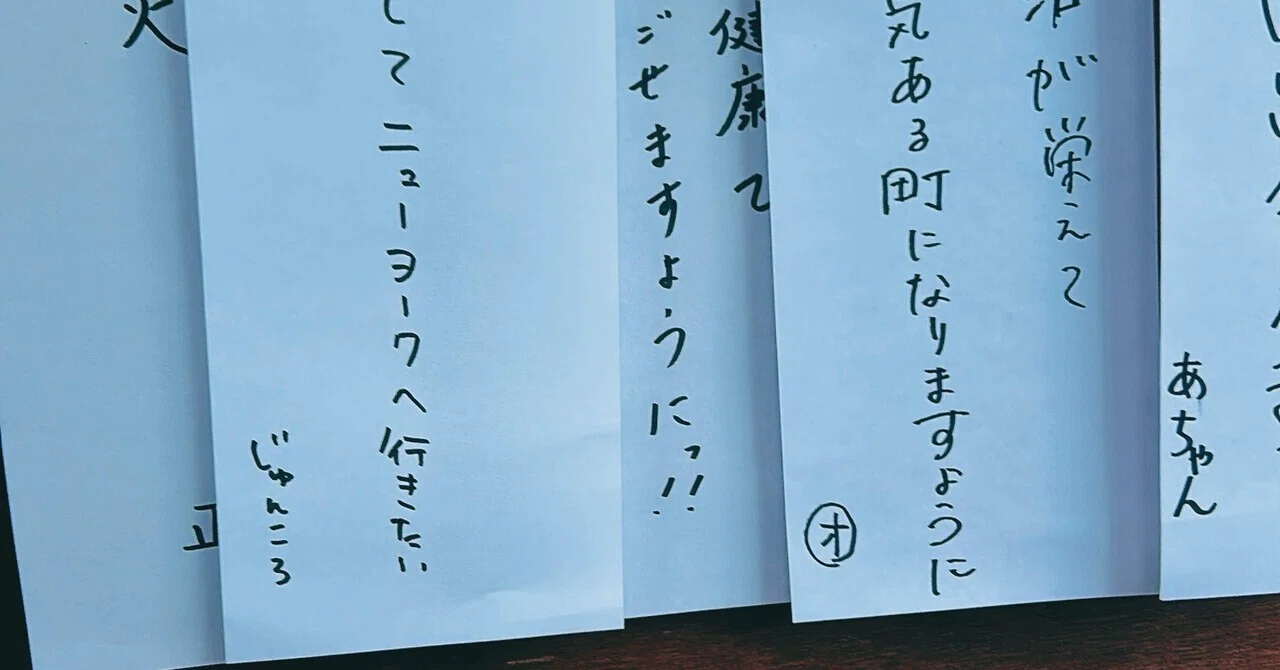 が栄えて
気ある町になりますように
オ
健康で
ごせますようにっ!!
してニューヨークへ行きたい
じゅんころ
あちゃん